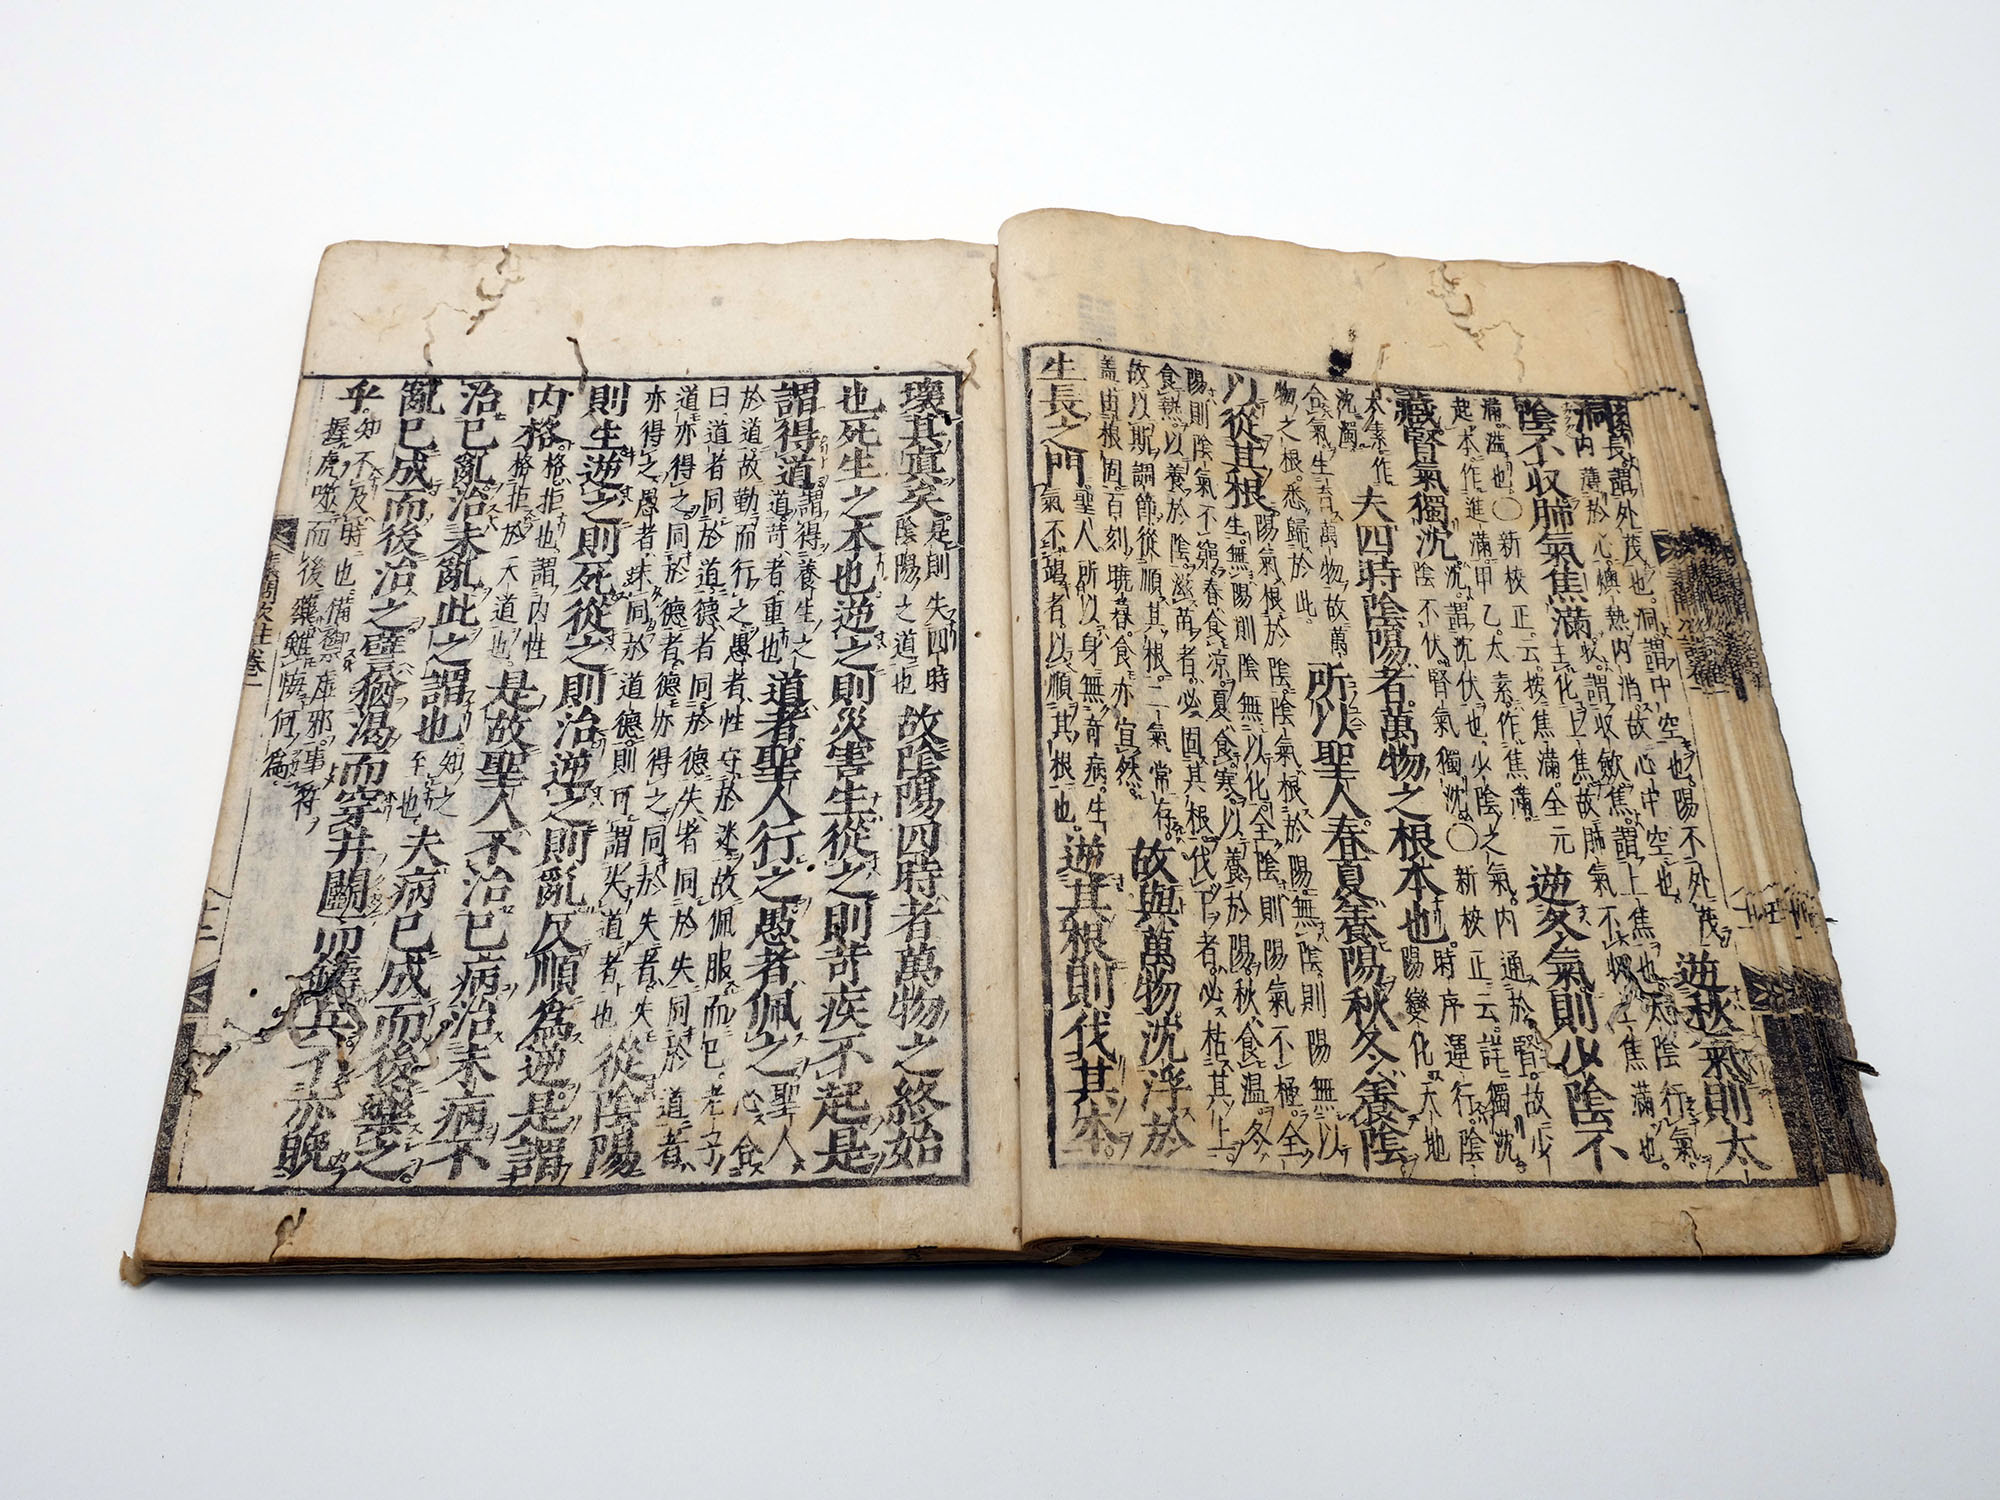 洞長謂外茂也洞謂中空也陽不外茂
内薄於心燠熱内消故心中空也逆秋氣則太
陰不収肺氣焦滿収謂収斂焦謂上焦也太陰行氣
主化上焦故肺氣不収上焦滿也
滿溢也○新校正云按焦滿全元
起本作進滿甲乙太素作焦滿逆冬氣則少陰不
藏腎氣獨沈沈謂沈伏也少陰之氣内通於腎故少
陰不伏腎氣獨沈○新校正云詳獨沈
太素作
沈濁夫四時陰陽者萬物之根本也時序運行陰
陽變化天地
合氣生育萬物故萬
物之根悉歸於此所以聖人春夏養陽秋冬養陰
以從其根陽氣根於陰陰氣根於陽無陰則陽無以
生無陽則陰無以化全陰則陽氣不極全
陽則陰氣不窮春食凉夏食寒以養於陽秋食温冬
食熱以養於陰滋苗者必固其根伐下者必枯其上
故以斯調節從順其根二氣常存
蓋由根固百刻曉暮食亦宜然故與萬物沈浮於
生長之門聖人所以身無奇病生
氣不竭者以順其根也逆其根則伐其本
壞其眞矣是則失四時
陰陽之道也故陰陽四時者萬物之終始
也死生之本也逆之則災害生從之則苛疾不起是
謂得道謂得養生之
道苛者重也道者聖人行之愚者佩之聖人
心合
於道故勤而行之愚者性守於迷故佩服而已老子
曰道者同於道德者同於德失者同於失同於道者
道亦得之同於德者德亦得之同於失者失
亦得之愚者未同於道德則可謂失道者也從陰陽
則生逆之則死從之則治逆之則亂反順爲逆是謂
内格格拒也謂内性
格拒於天道也是故聖人不治已病治未病不
治已亂治未亂此之謂也知之
至也夫病已成而後藥之
亂已成而後治之譬猶渴而穿井鬬而鑄兵不亦晩
乎知不及時也備禦虚邪事符
握虎噬而後藥雖悔何爲
素問次註卷一
十二